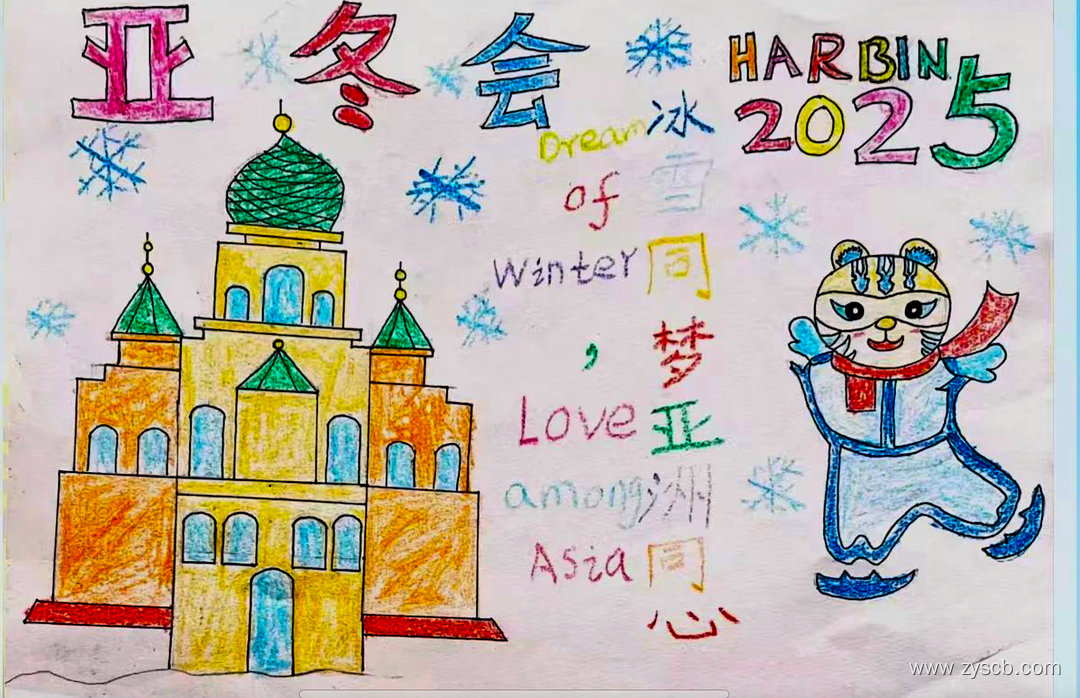 亚冬会
HARBIN
2025
Dream
of
Winter
,
Love
among
Asia
冰
雪
同
梦
亚
洲
同
心
www.zyscb.com